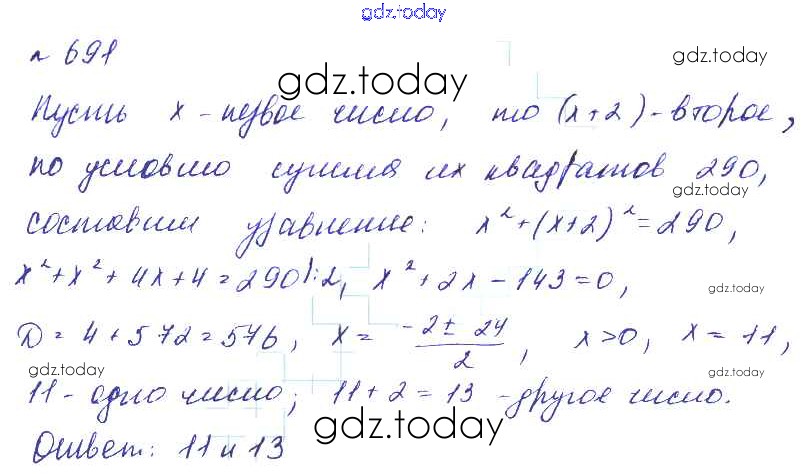 gdz.today
n 691
gdz.today
gdz.today
Пусть x - первое число, то (x+2) - второе,
по условию сумма их квадратов 290,
gdz.today
составим уравнение: x²+(x+2)²=290,
x²+x²+4x+4=290 |:2, x²+2x-143=0,
gdz.today
D=4+572=576, x= -2± 24 / 2, x>0, x=11,
gdz.today
gdz.today
11 - одно число; 11+2=13 - другое число.
gdz.today
Ответ: 11 и 13